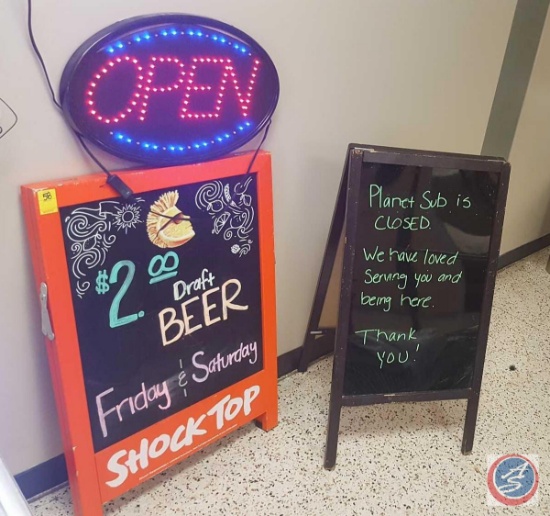 OPEN
58
$2.00
Draft
BEER
Friday & Saturday
SHOCK TOP
Planet Sub is
CLOSED.
We have loved
Serving you and
being here.
Thank
you!
AS